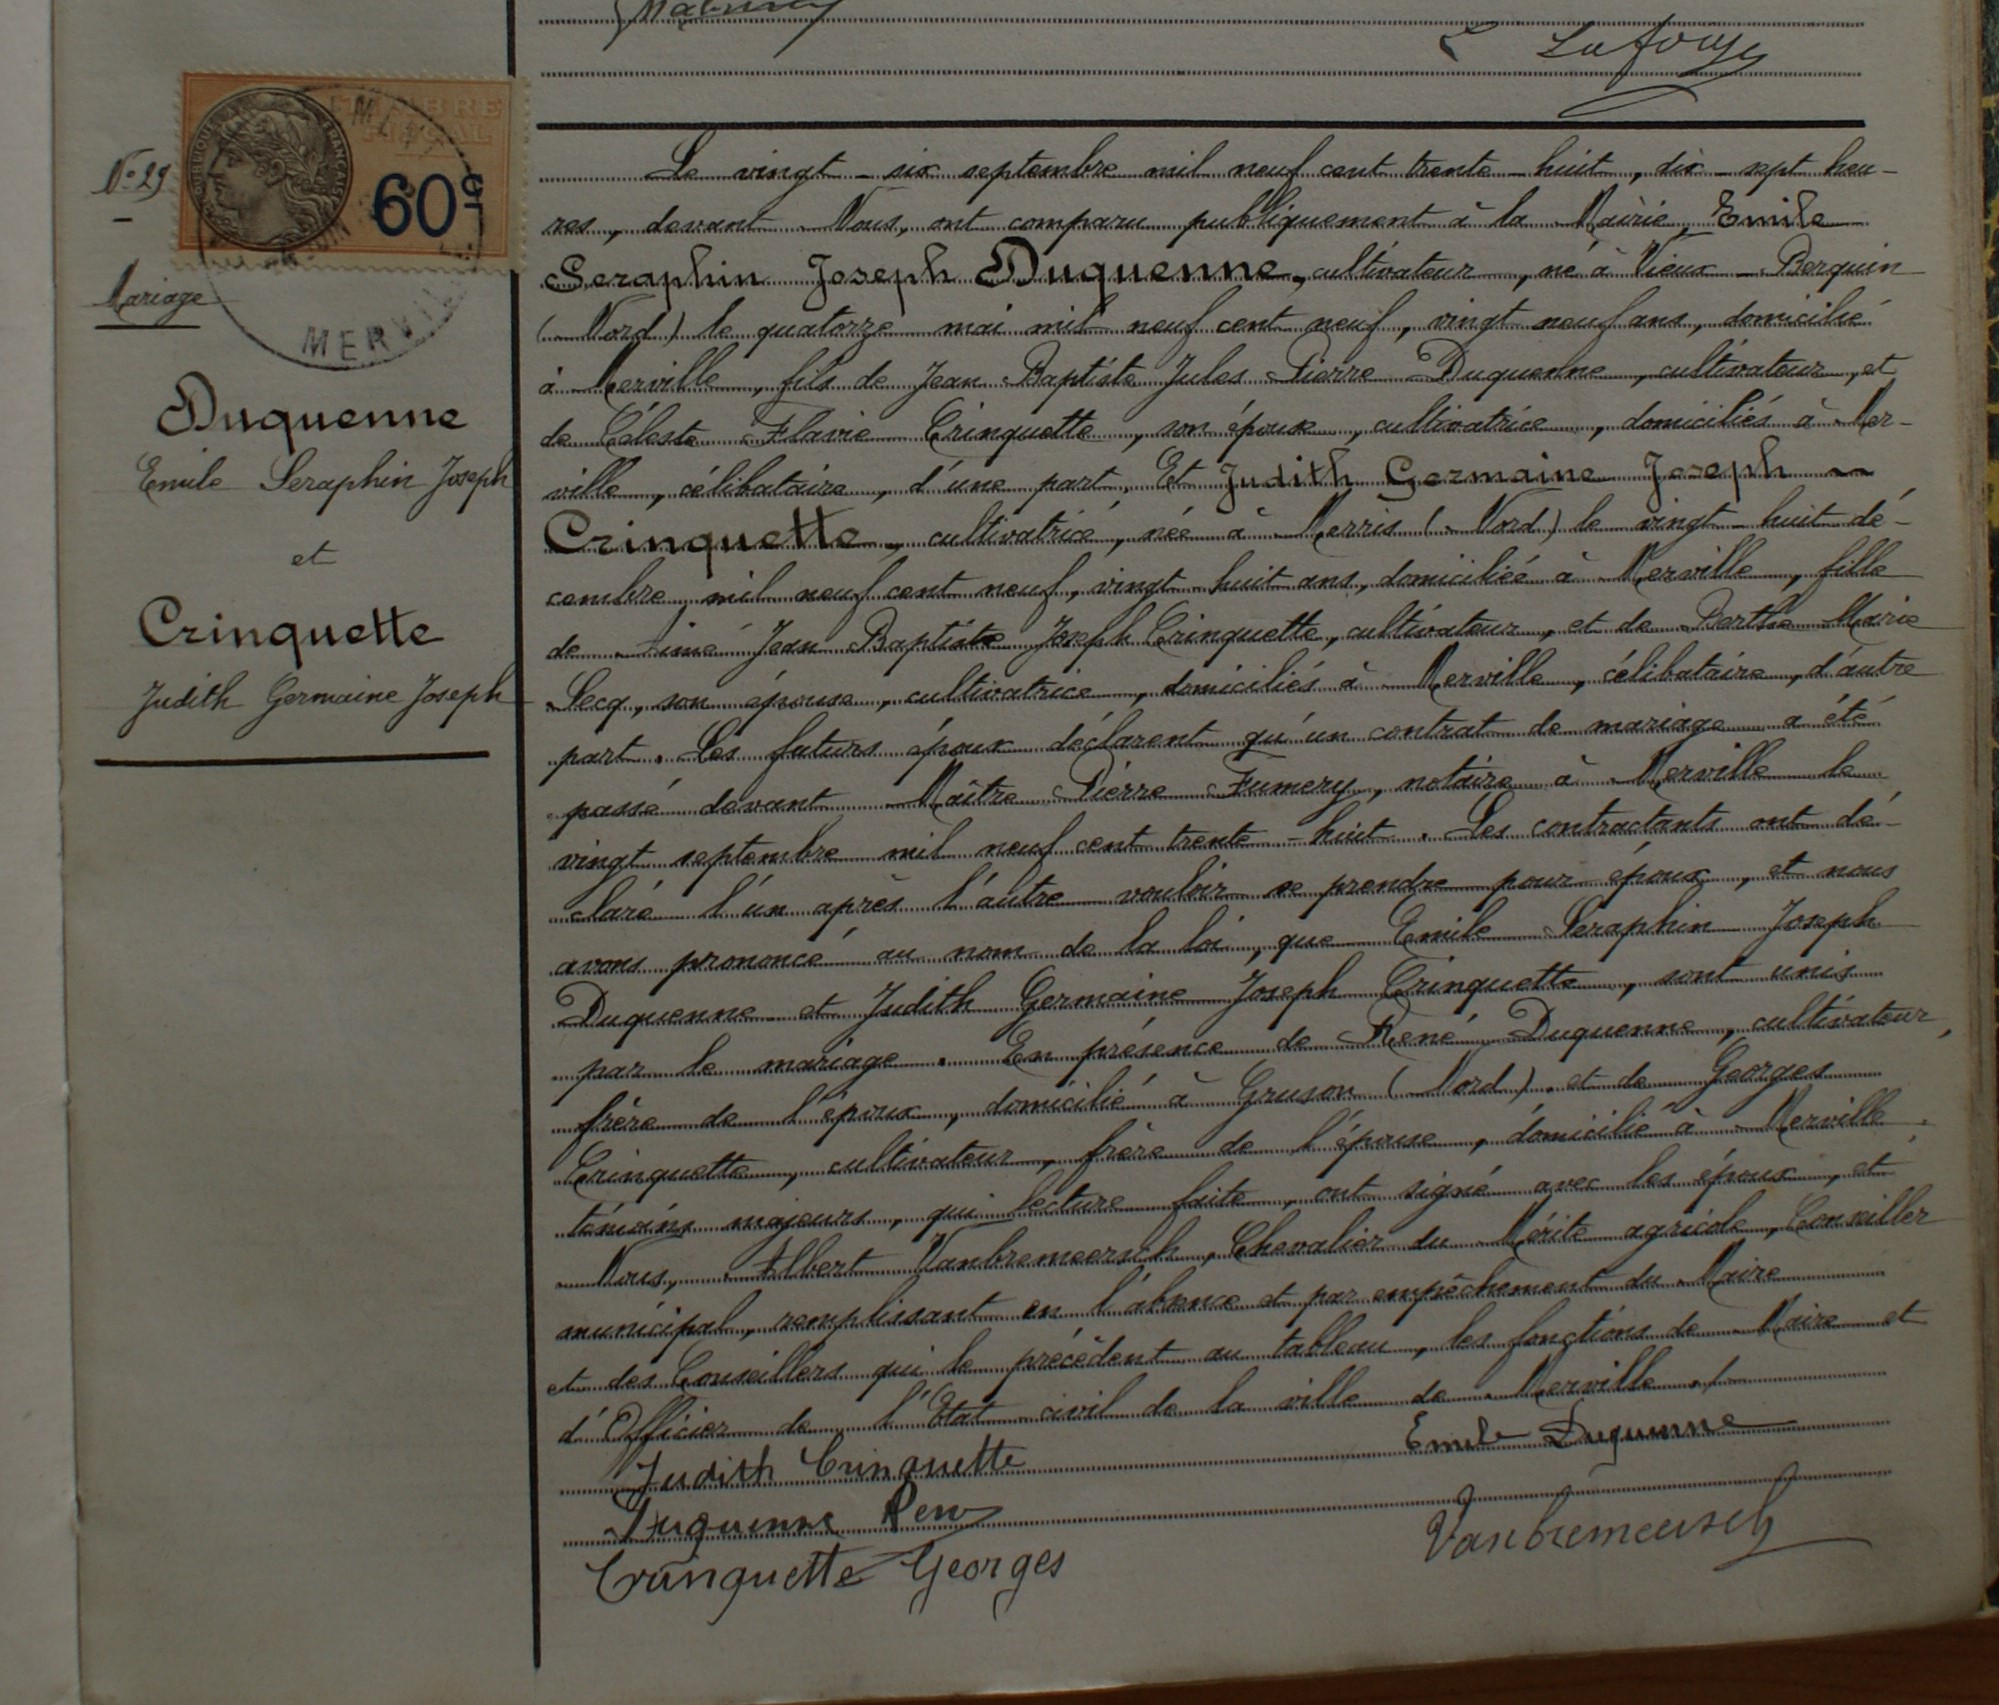 Lafouge
N° 29
TIMBRE
FISCAL
60c
MERVILLE
Mariage
Duquenne
Emile Seraphin Joseph
et
Crinquette
Judith Germaine Joseph
Le vingt-six septembre mil neuf cent trente-huit, dix-sept heu-
res, devant Nous, ont comparu publiquement à la Mairie, Emile
Seraphin Joseph Duquenne, cultivateur, né à Vieux-Berquin
(Nord) le quatorze mai mil neuf cent neuf, vingt neuf ans, domicilié
à Merville, fils de Jean Baptiste Jules Pierre Duquenne, cultivateur, et
de Céleste Flavie Crinquette, son épouse, cultivatrice, domiciliés à Mer-
ville, célibataire, d'une part. Et Judith Germaine Joseph
Crinquette, cultivatrice, née à Merris (Nord) le vingt-huit dé-
cembre mil neuf cent neuf, vingt-huit ans, domiciliée à Merville, fille
de Aimé Jean Baptiste Joseph Crinquette, cultivateur, et de Berthe Marie
Lecq, son épouse, cultivatrice, domiciliés à Merville, célibataire, d'autre
part. Les futurs époux déclarent qu'un contrat de mariage a été
passé devant Maître Pierre Fumery, notaire à Merville le
vingt septembre mil neuf cent trente-huit. Les contractants ont dé-
claré l'un après l'autre vouloir se prendre pour époux, et nous
avons prononcé au nom de la loi, que Emile Seraphin Joseph
Duquenne et Judith Germaine Joseph Crinquette, sont unis
par le mariage. En présence de René Duquenne, cultivateur,
frère de l'époux, domicilié à Gruson (Nord), et de Georges
Crinquette, cultivateur, frère de l'épouse, domicilié à Merville,
témoins majeurs, qui lecture faite, ont signé avec les époux, et
Nous, Albert Vanbremeersch, Chevalier du Mérite agricole, Conseiller
municipal, remplissant en l'absence et par empêchement du Maire
et des Conseillers qui le précèdent au tableau, les fonctions de Maire et
d'Officier de l'Etat civil de la ville de Merville ./.
Judith Crinquette
Emile Duquenne
Duquenne René
Vanbremeersch
Crinquette Georges